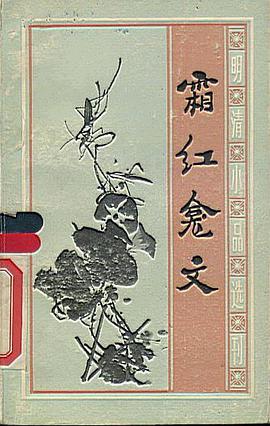 明清小品选刊
霜红龛文